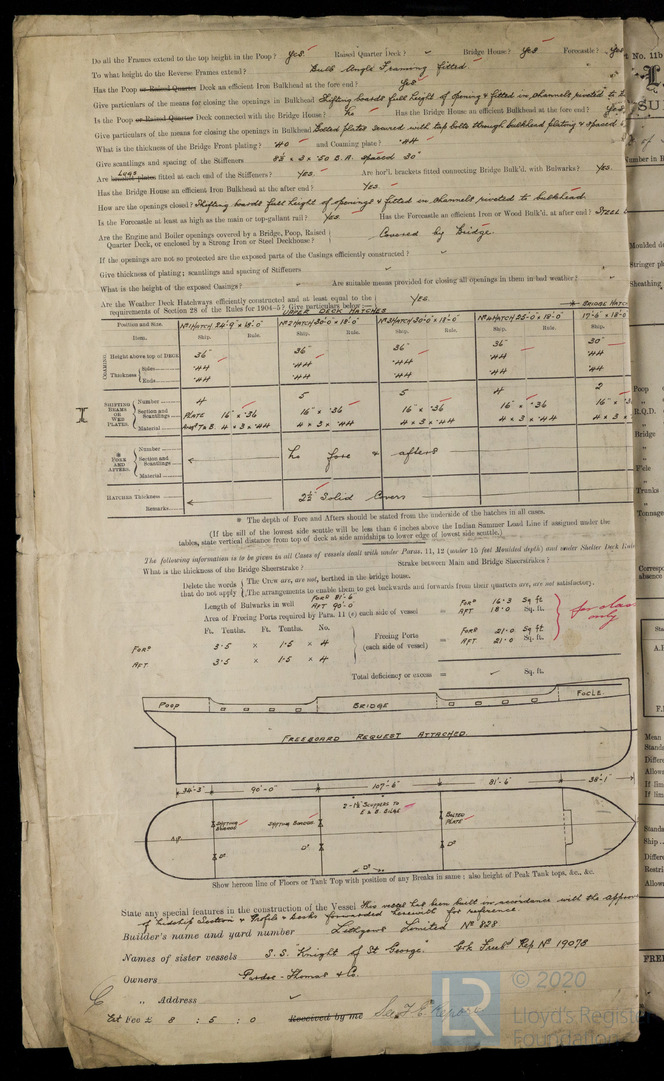 Do all the Frames extend to the top height in the Poop? Yes Raised Quarter Deck? Bridge House? Yes Forecastle? Yes
To what height do the Reverse Frames extend? Bulb Angle Framing fitted
Has the Poop or Raised Quarter Deck an efficient Iron Bulkhead at the fore end? Yes
Give particulars of the means for closing the openings in Bulkhead Shifting boards full height of opening & fitted in channels riveted to
Is the Poop or Raised Quarter Deck connected with the Bridge House? No Has the Bridge House an efficient Bulkhead at the fore end? Yes
Give particulars of the means for closing the openings in Bulkhead Bolted plates secured with tap bolts through bulkhead plating & spaced
What is the thickness of the Bridge Front plating? .40 and Coaming plate? .44
Give scantlings and spacing of the Stiffeners 8½ x 3 x .50 B.A. spaced 30"
Are Lugs fitted at each end of the Stiffeners? Yes. Are hor'l. brackets fitted connecting Bridge Bulk'd. with Bulwarks? Yes.
Has the Bridge House an efficient Iron Bulkhead at the after end? Yes.
How are the openings closed? Shifting boards full height of openings & fitted in channels riveted to bulkhead.
Is the Forecastle at least as high as the main or top-gallant rail? Yes. Has the Forecastle an efficient Iron or Wood Bulk'd. at after end? Steel
Are the Engine and Boiler openings covered by a Bridge, Poop, Raised Quarter Deck, or enclosed by a Strong Iron or Steel Deckhouse? Covered by Bridge.
If the openings are not so protected are the exposed parts of the Casings efficiently constructed?
Give thickness of plating; scantlings and spacing of Stiffeners
What is the height of the exposed Casings? Are suitable means provided for closing all openings in them in bad weather?
Are the Weather Deck Hatchways efficiently constructed and at least equal to the requirements of Section 28 of the Rules for 1904-5? Give particulars below:— Yes.
UPPER DECK HATCHES * BRIDGE HATCH
Position and Size. No 1 HATCH 24'-9" x 18'-0" No 2 HATCH 30'-0" x 18'-0" No 3 HATCH 30'-0" x 18'-0" No 4 HATCH 25'-0" x 18'-0" 17'-6" x 18'-0
Item. Ship. Rule. Ship. Rule. Ship. Rule. Ship. Rule. Ship.
COAMING Height above top of DECK 36" 36" 36" 36" 30"
Thickness Sides .44 .44 .44 .44 .44
Ends .44 .44 .44 .44 .44
SHIFTING BEAMS OR WEB PLATES. Number 4 5 5 4 2
Section and Scantlings PLATE 16" x .36 16" x .36 16" x .36 16" x .36 16" x
Material 4 x 3 x .44 4 x 3 x .44 4 x 3 x .44 4 x 3 x .44 4 x 3 x
* FORE AND AFTERS. Number
Section and Scantlings No fore & afters
Material
HATCHES Thickness 2½" Solid Covers
Remarks
* The depth of Fore and Afters should be stated from the underside of the hatches in all cases.
(If the sill of the lowest side scuttle will be less than 6 inches above the Indian Summer Load Line if assigned under the
tables, state vertical distance from top of deck at side amidships to lower edge of lowest side scuttle.)
The following information is to be given in all Cases of vessels dealt with under Paras. 11, 12 (under 15 feet Moulded depth) and under Shelter Deck
What is the thickness of the Bridge Sheerstrake? Strake between Main and Bridge Sheerstrakes?
Delete the words that do not apply { The Crew are, are not, berthed in the bridge house.
The arrangements to enable them to get backwards and forwards from their quarters are, are not satisfactory.
Length of Bulwarks in well For'd 81'-6 Aft 90'-0"
Area of Freeing Ports required by Para. 11 (e) each side of vessel = For'd 16.3 Sq. ft Aft 18.0 Sq. ft.
for class only
Ft. Tenths. Ft. Tenths. No.
For'd 3.5 x 1.5 x 4 Freeing Ports = For'd 21.0 Sq ft
Aft 3.5 x 1.5 x 4 (each side of vessel) Aft 21.0 Sq. ft.
Total deficiency or excess = Sq. ft.
POOP BRIDGE FOCLE.
FREEBOARD REQUEST ATTACHED.
34'-3" 90'-0" 107'-6" 81'-6" 38'-1"
SHIFTING BOARDS SHIFTING BOARDS 2-1½" SCUPPERS TO E & B BILGE BOLTED PLATE
Aft Do Do Do
Do
Show hereon line of Floors or Tank Top with position of any Breaks in same; also height of Peak Tank tops, &c., &c.
State any special features in the construction of the Vessel This vessel has been built in accordance with the approved
Midship Section & Profile & decks forwarded herewith for reference.
Builder's name and yard number Lithgows Limited No 828
Names of sister vessels S.S. "Knight of St George." Gok Rep No 19078
Owners Purdie-Thomas & Co.
„ Address
Fee £ 8 : 5 : 0 Received by me See F.E. Report
LR
© 2020
Lloyd's Register
Foundation
No. 11b
L
SU
of
Number in
Moulded d
Stringer pl
Sheathing
Poop
R.Q.D.
Bridge
F'cle
Trunks
Tonnage
Corresp
absence
Sta
A.
F.
Mean
Standa
Differe
Allowa
If lim
If lim
Standa
Ship
Differe
Restri
Allow
FREE